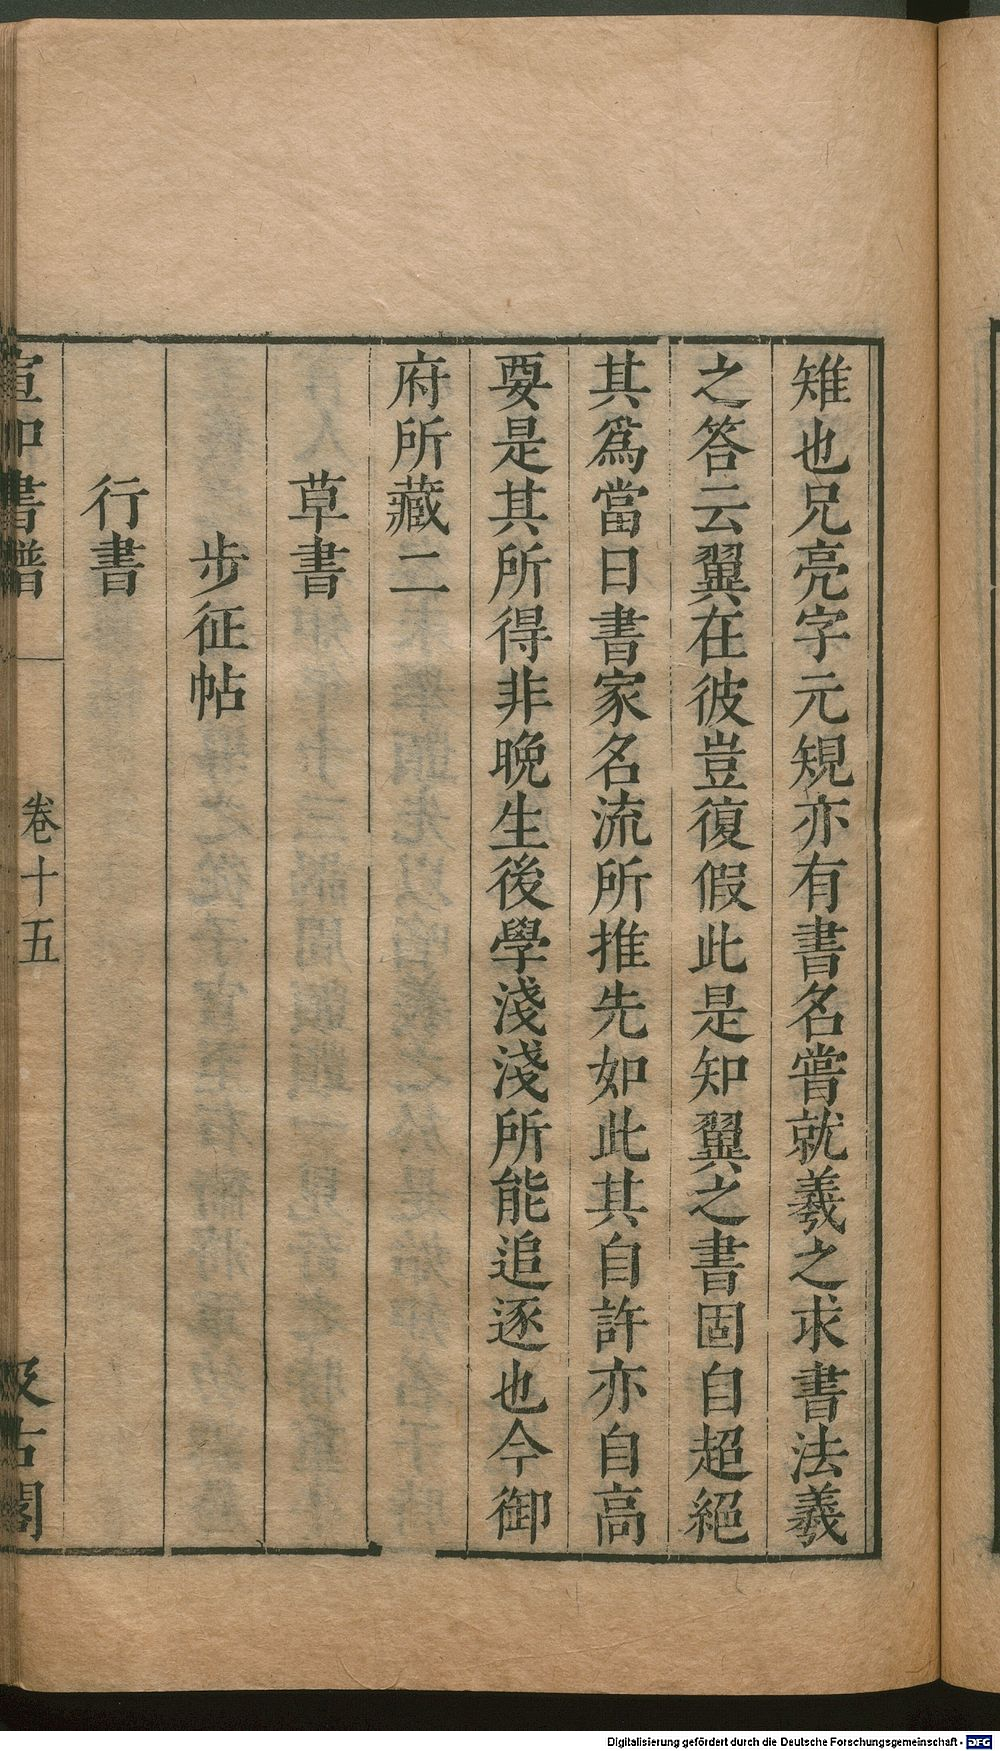 雉也兄亮字元規亦有書名嘗就羲之求書法羲
之答云翼在彼豈復假此是知翼之書固自超絕
其爲當日書家名流所推先如此其自許亦自高
要是其所得非晚生後學淺淺所能追逐也今御
府所藏二
草書
步征帖
行書
宣和書譜 卷十五 汲古閣
Digitalisierung gefördert durch die Deutsche Forschungsgemeinschaft - DFG